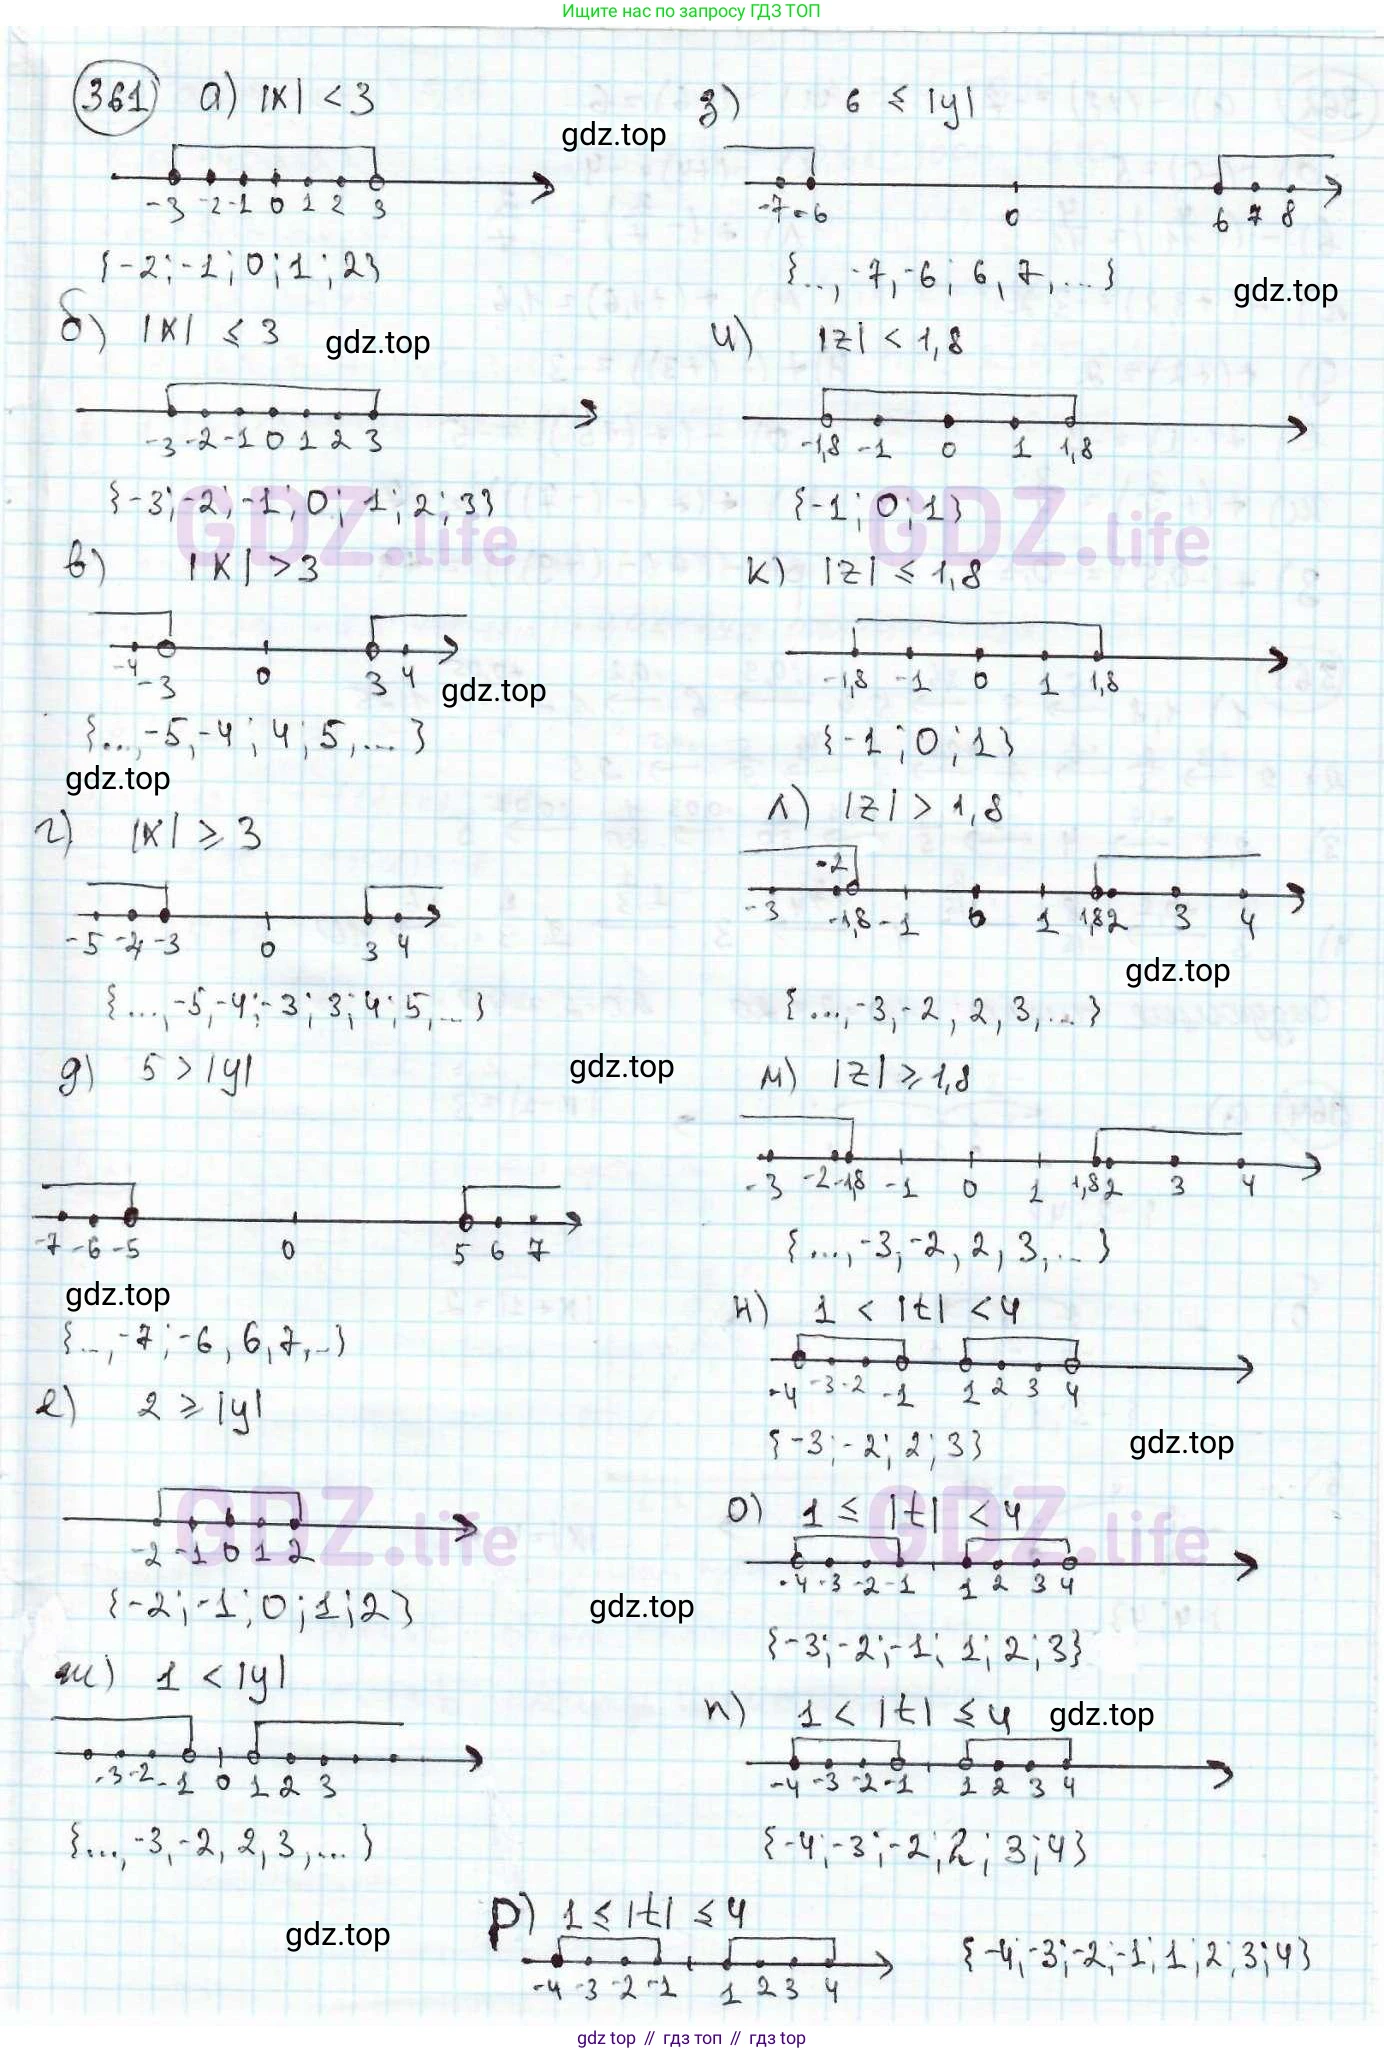 Ищите нас по запросу ГДЗ ТОП
361 а) |x| < 3
gdz.top
-3 -2 -1 0 1 2 3
{-2; -1; 0; 1; 2}
б) |x| ≤ 3
gdz.top
-3 -2 -1 0 1 2 3
{-3; -2; -1; 0; 1; 2; 3}
в) |x| > 3
-4 -3 0 3 4
gdz.top
{..., -5, -4; 4; 5, ...}
gdz.top
г) |x| ≥ 3
-5 -4 -3 0 3 4
{..., -5, -4; -3; 3; 4; 5, ...}
д) 5 > |y|
gdz.top
-7 -6 -5 0 5 6 7
gdz.top
{..., -7; -6, 6, 7, ...}
е) 2 ≥ |y|
-2 -1 0 1 2
{-2; -1; 0; 1; 2}
gdz.top
ж) 1 < |y|
-3 -2 -1 0 1 2 3
{..., -3, -2, 2, 3, ...}
gdz.top
з) 6 ≤ |y|
-7 -6 0 6 7 8
{..., -7, -6; 6, 7, ...}
gdz.top
и) |z| < 1,8
-1,8 -1 0 1 1,8
{-1; 0; 1}
к) |z| ≤ 1,8
-1,8 -1 0 1 1,8
{-1; 0; 1}
л) |z| > 1,8
-2
-3 -1,8 -1 0 1 1,8 2 3 4
gdz.top
{..., -3, -2, 2, 3, ...}
м) |z| ≥ 1,8
-3 -2 -1,8 -1 0 1 1,8 2 3 4
{..., -3, -2, 2, 3, ...}
н) 1 < |t| < 4
-4 -3 -2 -1 1 2 3 4
{-3; -2; 2; 3}
gdz.top
о) 1 ≤ |t| < 4
-4 -3 -2 -1 1 2 3 4
{-3; -2; -1; 1; 2; 3}
п) 1 < |t| ≤ 4
gdz.top
-4 -3 -2 -1 1 2 3 4
{-4; -3; -2; 2; 3; 4}
р) 1 ≤ |t| ≤ 4
-4 -3 -2 -1 1 2 3 4
{-4; -3; -2; -1; 1; 2; 3; 4}
GDZ.life
GDZ.life
GDZ.life
GDZ.life
gdz top // гдз топ // gdz top